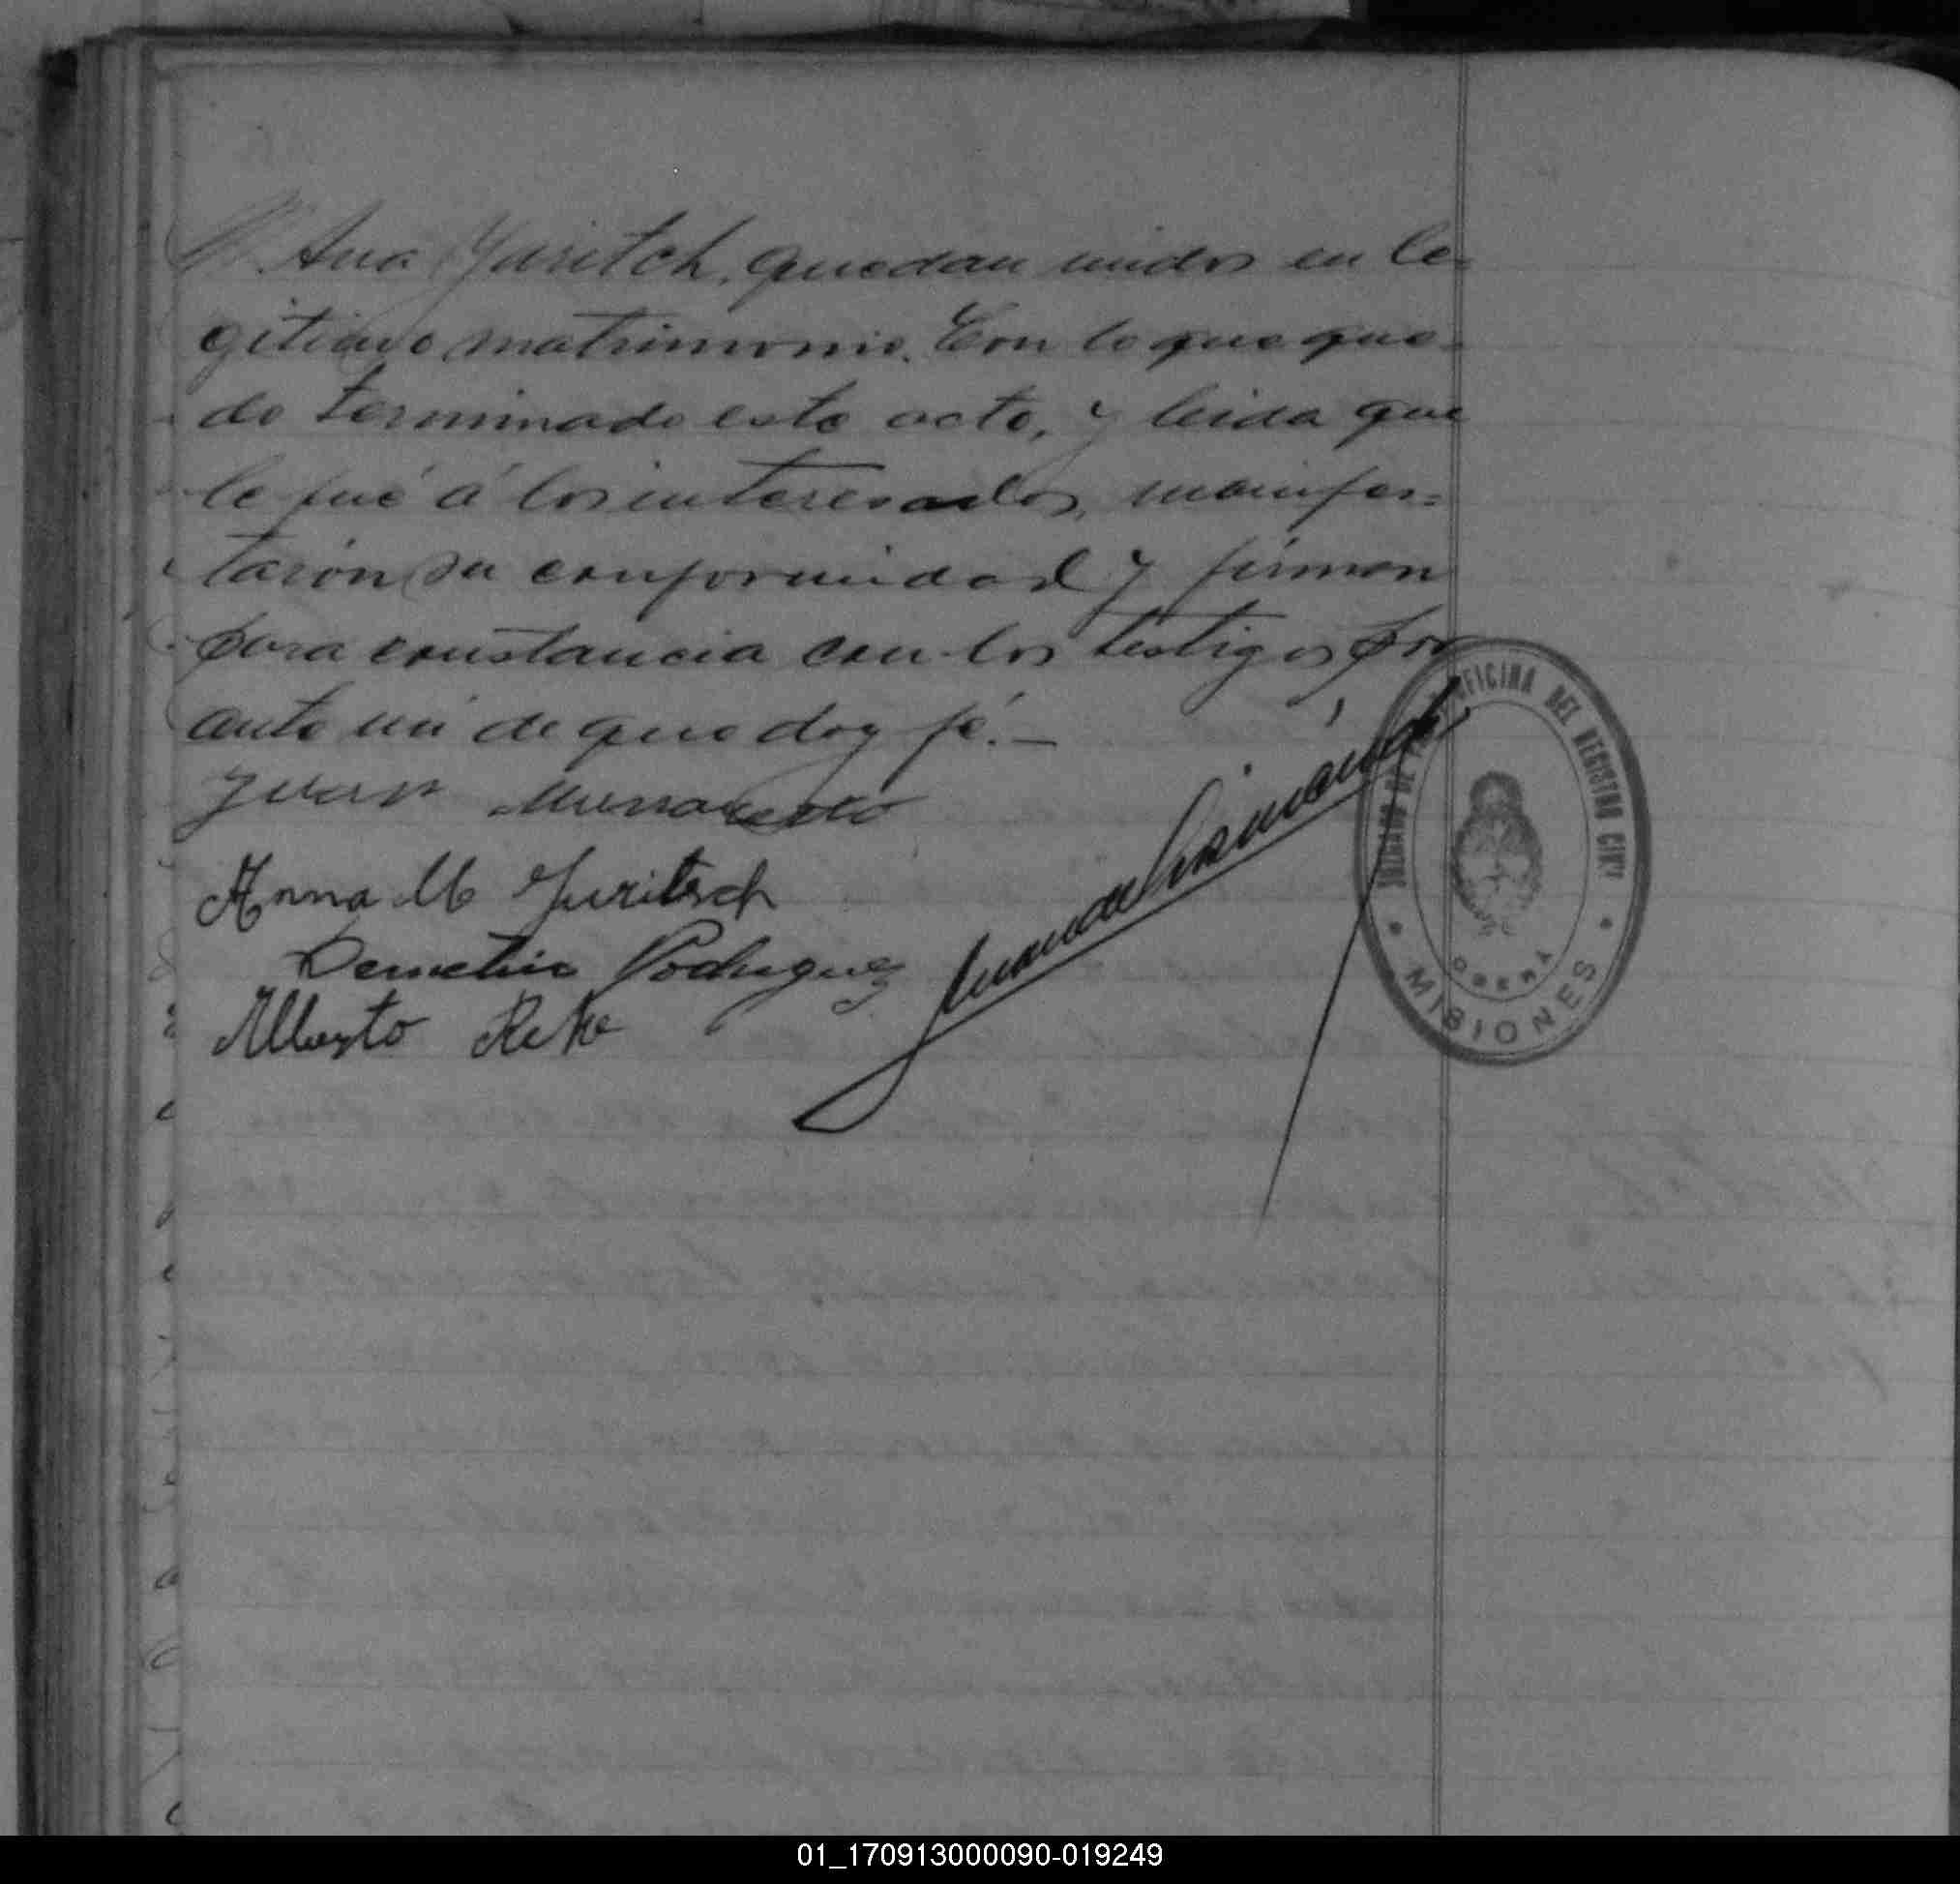 Ana Yuritch, quedan unidos en le=
gitimo matrimonio. Con lo que que=
do terminado este acto, y leida que
le fué á los interesados, manifes=
tarón su conformidad y firman
para constancia con los testigos por
ante mi de que doy fé.—
Juan
Anna M Juritsch
Demetrio Rodriguez
Alberto
JUZGADO DE OFICINA DEL REGISTRO CIVIL
OBERA
MISIONES
01_170913000090-019249